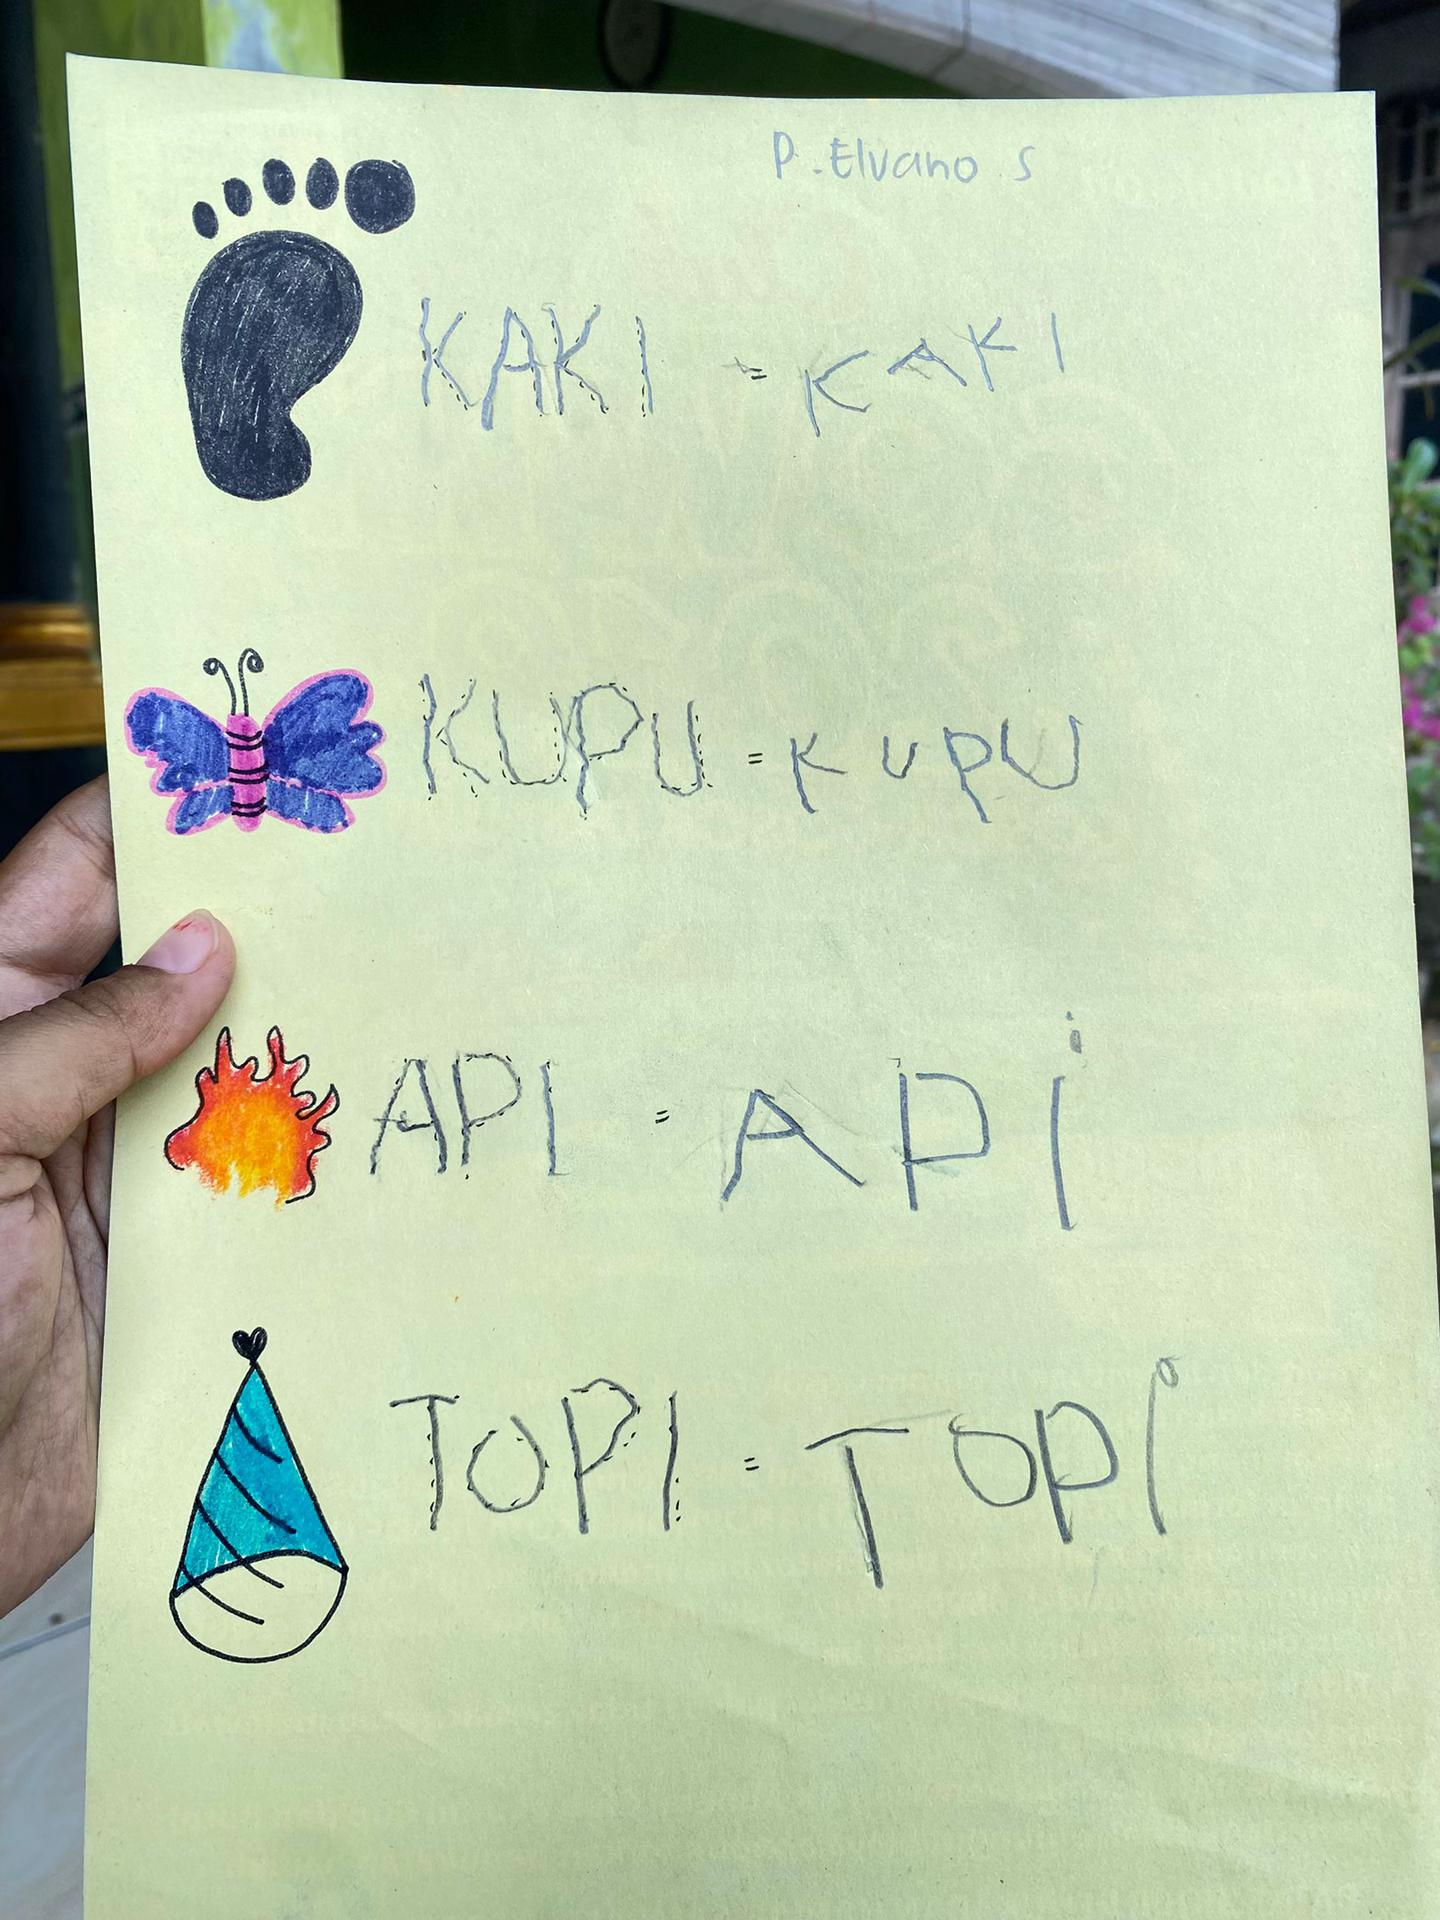 P. Elvano. S
KAKI = KAKI
KUPU = KUPU
API = APi
TOPI = TOPi